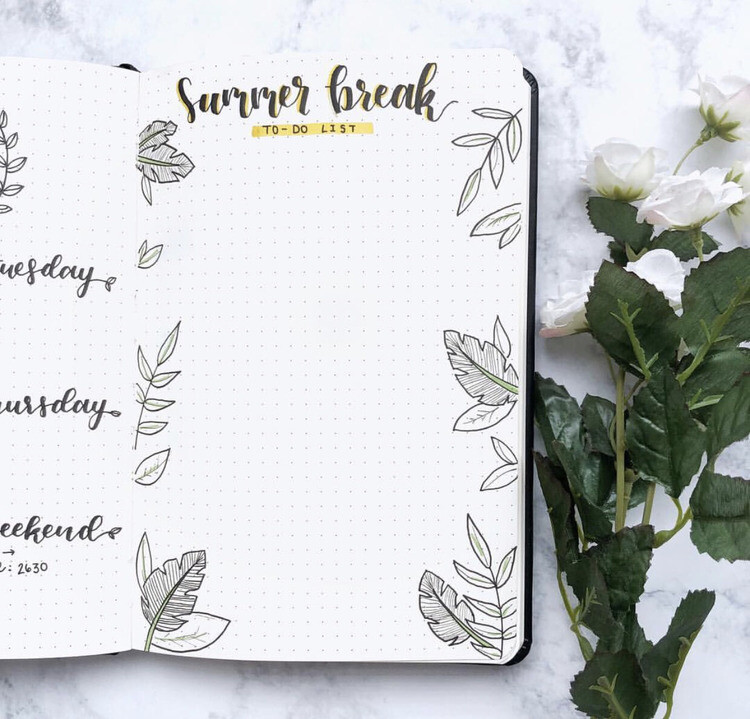 uesday
ursday
eekend
→
: 2630
Summer break
TO-DO LIST